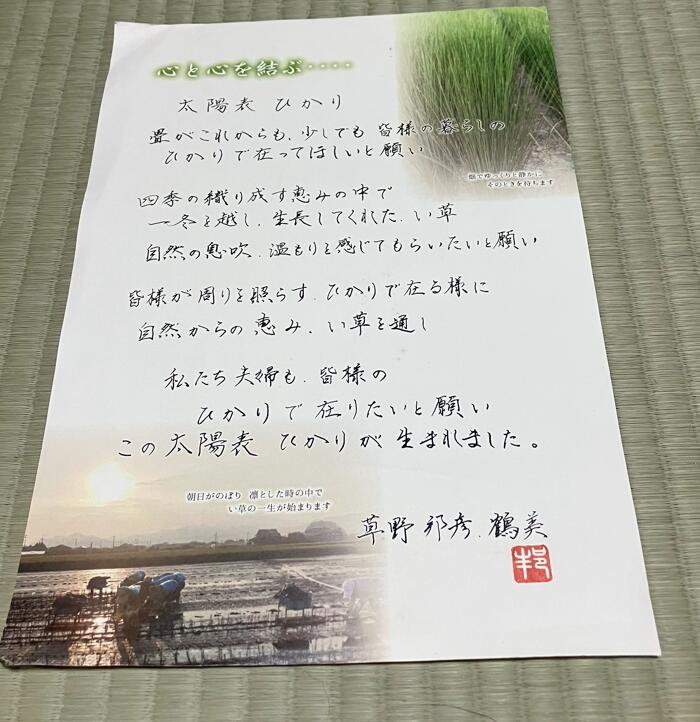 心と心を結ぶ・・・・
太陽表 ひかり
畳がこれからも、少しでも 皆様の暮らしの
ひかりで在ってほしいと願い
畑でゆっくりと静かに
そのときを待ちます
四季の織り成す恵みの中で
一冬を越し、生長してくれた、い草
自然の息吹、温もりを感じてもらいたいと願い
皆様が周りを照らす、ひかりで在る様に
自然からの恵み、い草を通し
私たち夫婦も、皆様の
ひかりで在りたいと願い
この太陽表 ひかりが生まれました。
朝日がのぼり 凛とした時の中で
い草の一生が始まります
草野 邦彦、鶴美
邦